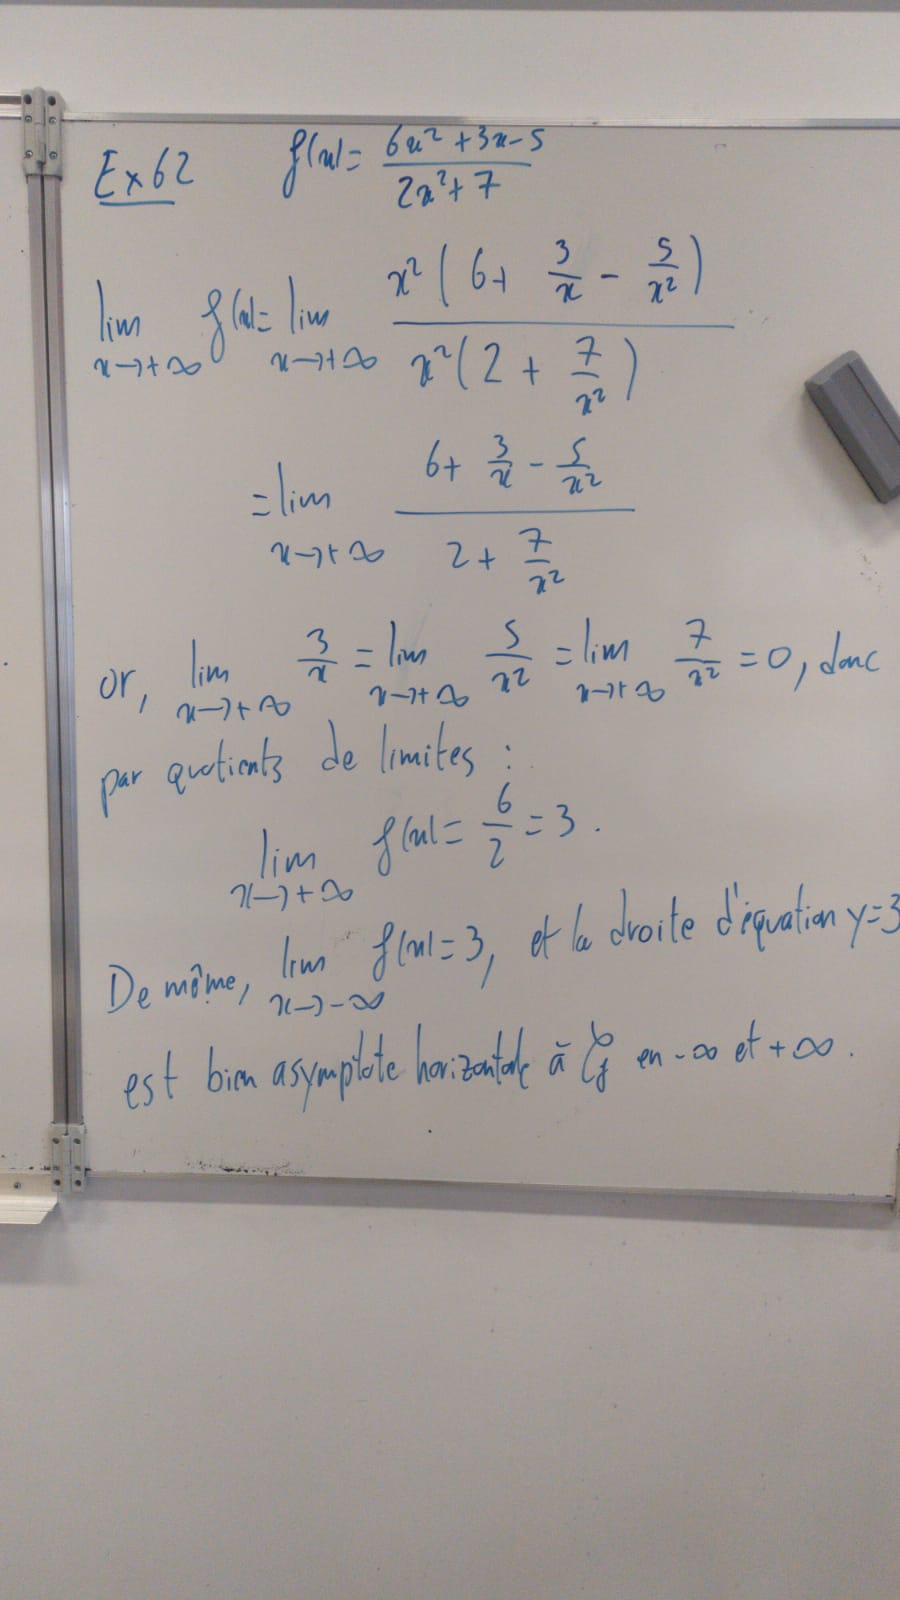 Ex 62 f(x) = (6x² + 3x - 5)/(2x² + 7)
lim x→+∞ f(x) = lim x→+∞ x²(6 + 3/x - 5/x²)/x²(2 + 7/x²)
= lim x→+∞ (6 + 3/x - 5/x²)/(2 + 7/x²)
or, lim x→+∞ 3/x = lim x→+∞ 5/x² = lim x→+∞ 7/x² = 0, donc
par quotients de limites :
lim x→+∞ f(x) = 6/2 = 3.
De même, lim x→-∞ f(x) = 3, et la droite d'équation y=3
est bien asymptote horizontale à 𝒞f en -∞ et +∞.